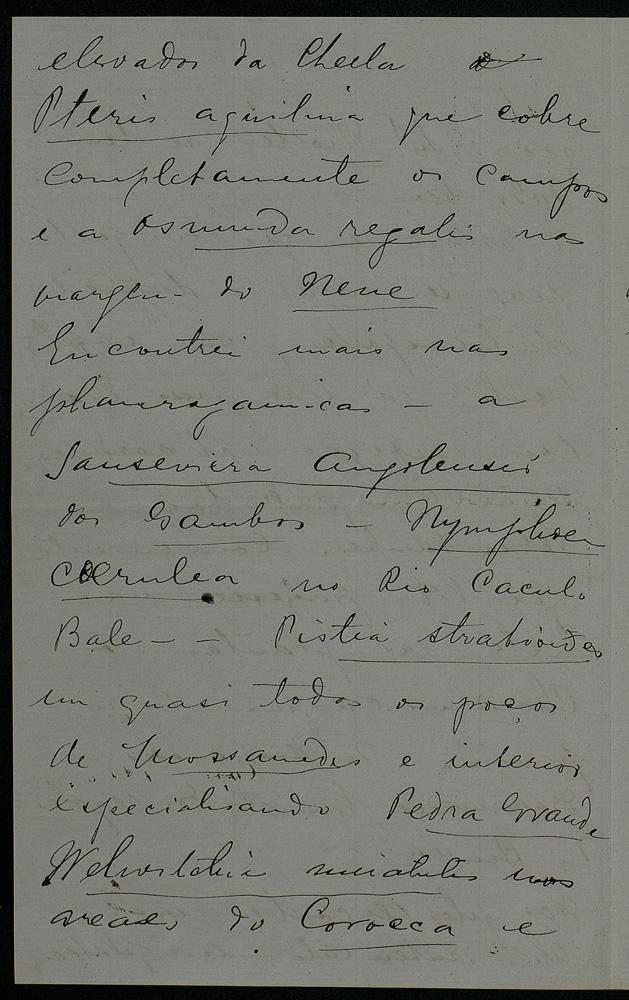 elevados da Cheela a
Pteris aquilina que cobre
completamente os campos
e a Osmunda regalis nas
margen- do Nene
Encontrei mais nas
phanerogamicas - a
Sanseviera Angolensis
dos Gambos - Nymphoea
Coerulea no Rio Cacul.
Bale - - Pistia stratioides
em quasi todos os poços
de Mossamedes e interior
especialisando Pedra Grande
Welwitchia mirabilis nos
areaes do Coroca e